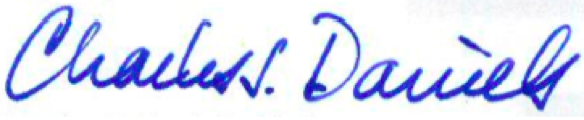 Charles S. Daniels